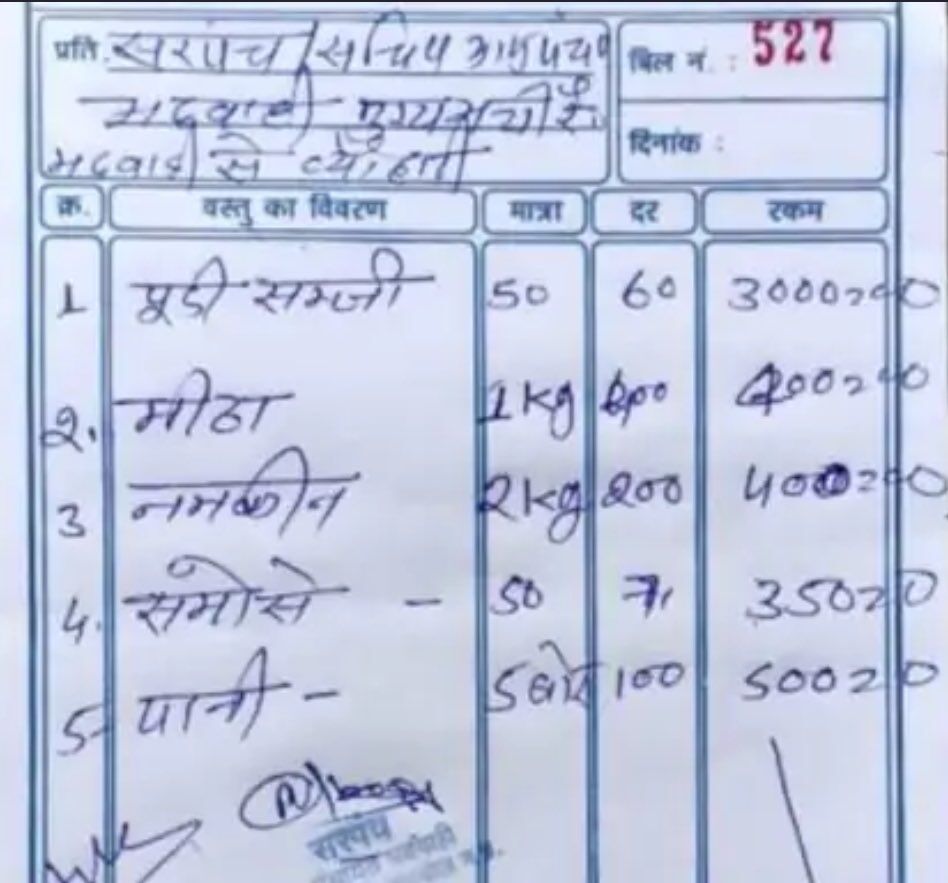 प्रति. सरपंच / सचिव ग्राम पंचा
भदवाही
भदवाही से
बिल नं. : 527
दिनांक :
क्र. वस्तु का विवरण मात्रा दर रकम
1 पूडी सब्जी 50 60 3000=00
2. मीठा 1kg
3 नमकीन 2kg 200 400=00
4. समोसे - 50 7 350=0
5- पानी - 5 100 500=0
सरपंच